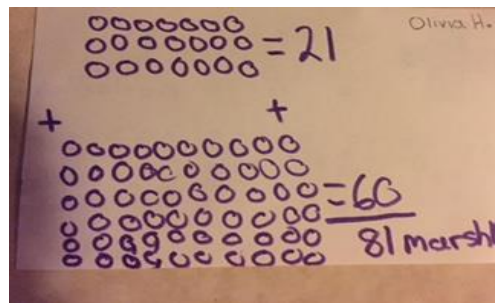 Olivia H.
= 21
+ +
= 60
81 marshl